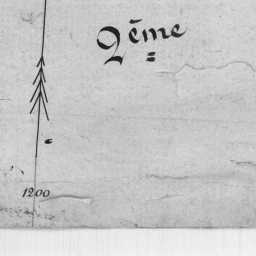 2ēme
1200